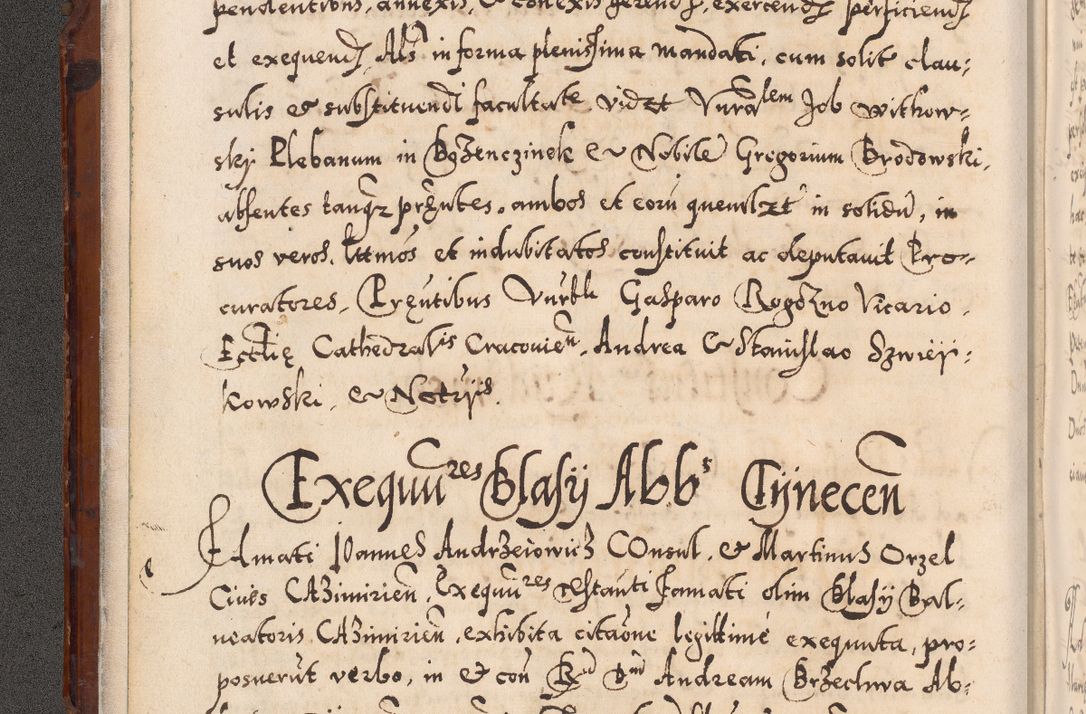 pendentibus, annexis, & conexis gerend, exercend perficiend
et exequend, Als in forma plenissima mandati, cum solit clau=
sulis et substituendi facultate, videt Vnrãlem Job Withow=
sky Plebanum in Bozenczinek & Nobile Gregorium Brodowski,
absentes tanq prẽntes, ambos et eorũ quemlzt in solidũ, in
suos veros, lttmos et indubitatos constituit ac deputavit Pro=
curatores, Pręntibus Vnrbli Gasparo Rogozno Vicario,
Ecctię Cathedralis Cracovieñ, Andrea & Stanislao Szwiey=
kowski, & Notrijs.
Exequũres Blasij Abbs Tyneceñ
Famati Joannes Andrzeiowicz Consul, et Martinus Orzel
Cives Cazimirieñ, Exequũres testanti Famati olim Blasij Bal=
neatoris Cazimirieñ, exhibita citaõne legittime exequuta, pro=
posuerũt verbo, in et con Rnd Dnm Andream Brzechwa Ab=